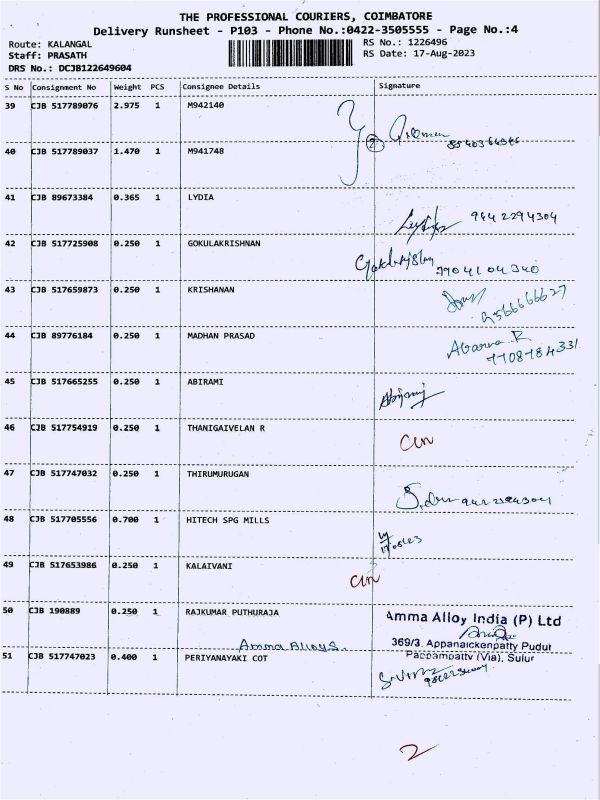 THE PROFESSIONAL COURIERS, COIMBATORE
Delivery Runsheet - P103 - Phone No.:0422-3505555 - Page No.:4
Route: KALANGAL
RS No.: 1226496
Staff: PRASATH
RS Date: 17-Aug-2023
DRS No.: DCJB122649604
S No Consignment No Weight PCS Consignee Details Signature
39 CJB 517789076 2.975 1 M942140
40 CJB 517789037 1.470 1 M941748
2
41 CJB 89673384 0.365 1 LYDIA
9642294304
42 CJB 517725908 0.250 1 GOKULAKRISHNAN
7904104340
43 CJB 517659873 0.250 1 KRISHANAN
9566666627
44 CJB 89776184 0.250 1 MADHAN PRASAD
Abarna R
7708784331
45 CJB 517665255 0.250 1 ABIRAMI
46 CJB 517754919 0.250 1 THANIGAIVELAN R
47 CJB 517747032 0.250 1 THIRUMURUGAN
48 CJB 517705556 0.700 1 HITECH SPG MILLS
49 CJB 517653986 0.250 1 KALAIVANI
50 CJB 190889 0.250 1 RAJKUMAR PUTHURAJA
Amma Alloy India (P) Ltd
369/3, Appanaickenpatty Pudur
Amma Alloys.
Pappampatty (Via), Sulur
51 CJB 517747023 0.400 1 PERIYANAYAKI COT
2